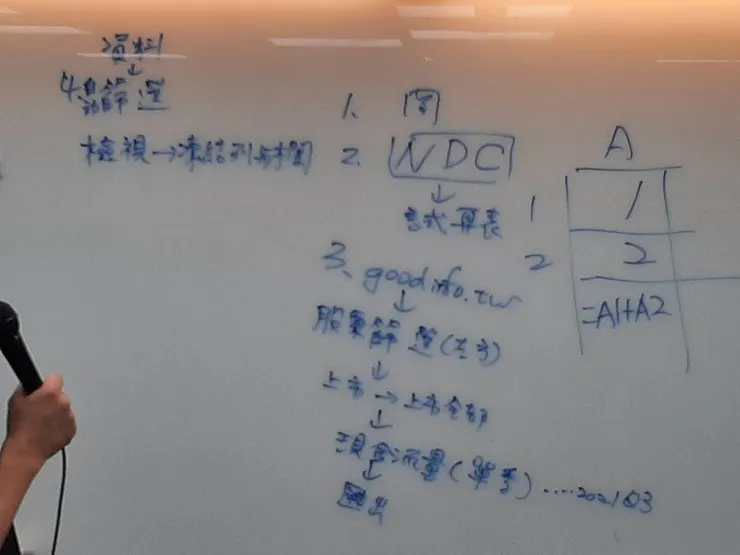 資料
↓
4.自動篩選
檢視→凍結列與欄
1、图
2、NDC
↓
試算表
3、goodinfo.tw
↓
股票篩選(左方)
↓
上市→上市全部
↓
現金流量(單季)....2021Q3
↓
匯出
A
1 1
2 2
=A1+A2